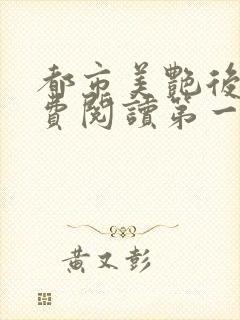 都市美艷後
費閱讀第一
黃又彭